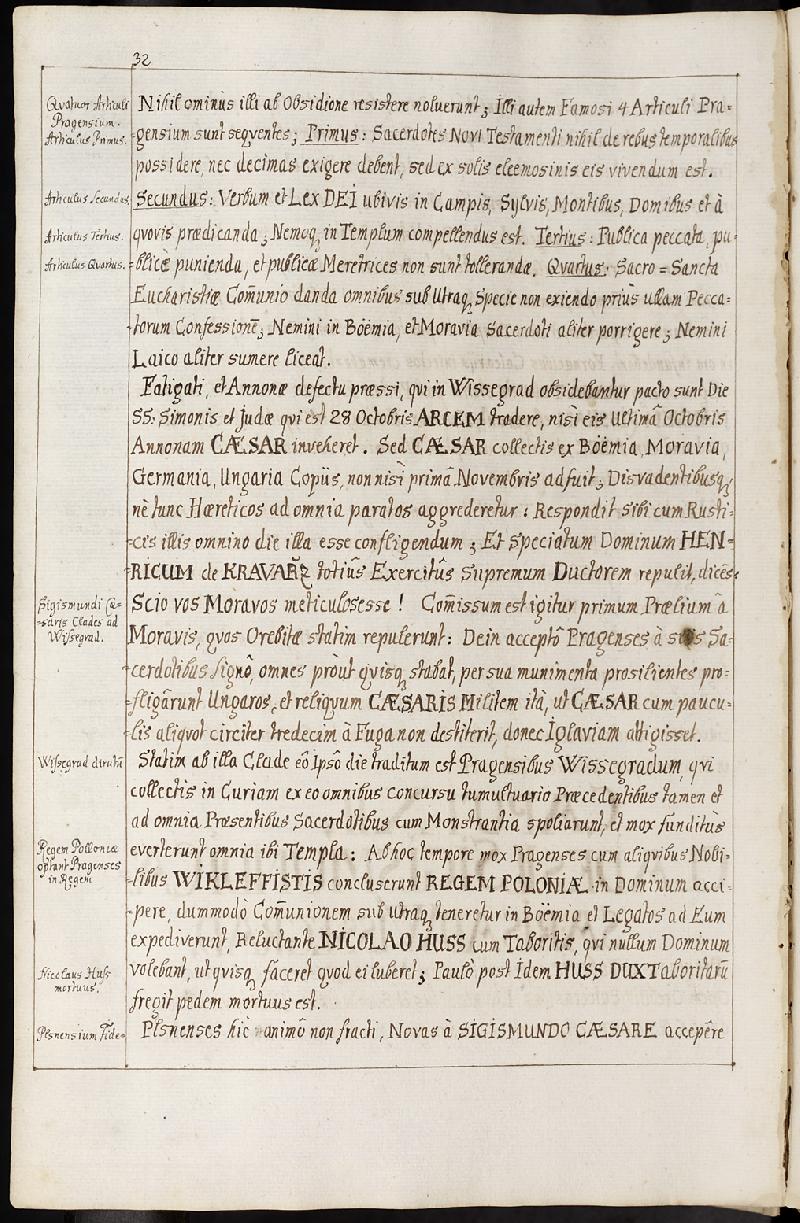 32
Qvatuor Articuli
Pragensium.
Articulus Primus.
Articulus Secundus
Articulus Tertius.
Articulus Qvartus.
Nihil ominus illi ab Obsidione resistere noluerunt; Illi autem Famosi 4 Articuli Pra=
gensium sunt seqventes; Primus: Sacerdotes Novi Testamenti nihil de rebus temporalibus
possidere, nec decimas exigere debent, sed ex solis eleemosinis eis vivendum est.
Secundus: Verbum et Lex DEI ubivis in Campis, Sylvis, Montibus, Domibus et à
qvovis prædicanda; Nemoq; in Templum compellendus est. Tertius: Publica peccata, pu=
=blicæ punienda, et publicæ Meretrices non sunt tollerandæ. Qvartus: Sacro=Sancta
Eucharistiæ Com̃unio danda omnibus sub Utraq; Specie non exiendo priùs ullam Pecca=
=torum Confessionẽ; Nemini in Böëmia, et Moravia Sacerdoti aliter porrigere; Nemini
Laico aliter sumere liceat.
Fatigati, et Annonæ defectu præssi, qui in Wissegrad obsidebantur pacto sunt Die
SS: Simonis et Judæ qvi est 28 Octobris ARCEM tradere, nisi eis Ultimâ Octobris
Annonam CÆSAR inveheret. Sed CÆSAR collectis ex Böëmia, Moravia,
Germania, Ungaria Copiis, non nisi primâ Novembris adfuit; Disvadentibusq;
nè tunc Hæreticos ad omnia paratos aggrederetur: Respondit sibi cum Rusti=
=cis illis omnino die illa esse confligendum; Et Speciatum Dominum HEN=
=RICUM de KRAVARZ totiùs Exercitûs Supremum Ductorem repulit, dicẽs:
Scio vos Moravos meticulos esse! Com̃issum est igitur primum Prælium à
Moravis, qvos Orebitæ statim repulerunt: Dein acceptô Pragenses à suis Sa=
=cerdotibus signô, omnes pròut qvisq; stabat, per sua munimenta prosilientes pro=
=fligârunt Ungaros, et reliqvum CÆSARIS Militem ità, ut CÆSAR cum paucu=
=lis aliqvot circiter tredecim à Fuga non destiterit, donec Iglaviam attigisset.
Sigismundi Cæ=
=saris Clades ad
Wissegrad.
Statim ab illa Clade eô Ipsô die traditum est Pragensibus Wissegradum, qvi
collectis in Curiam ex eo omnibus concursu tumultuario Præcedentibus tamen et
ad omnia Præsentibus Sacerdotibus cum Monstrantia spoliarunt, et mox funditùs
everterunt omnia ibi Templa: Ab hoc tempore mox Pragenses cum aliqvibus Nobi=
=libus WIKLEFFISTIS concluserunt REGEM POLONIÆ in Dominum acci=
=pere, dummodò Com̃unionem sub utraq; teneretur in Böëmia et Legatos ad Eum
expediverunt, Reluctante NICOLAO HUSS cum Taboritis, qvi nullum Dominum
volebant, ut qvisq; faceret qvod ei luberet; Paulò post Idem HUSS DUX Taboritarũ
fregit pedem mortuus est.
Wissegrad dirutũ
Regem Polloniæ
optant Pragenses
in Regem
Nicolaus Huss
mortuus.
Plsnensium Fide=
Plsnenses hic animô non fracti, Novas à SIGISMUNDO CÆSARE accepêre